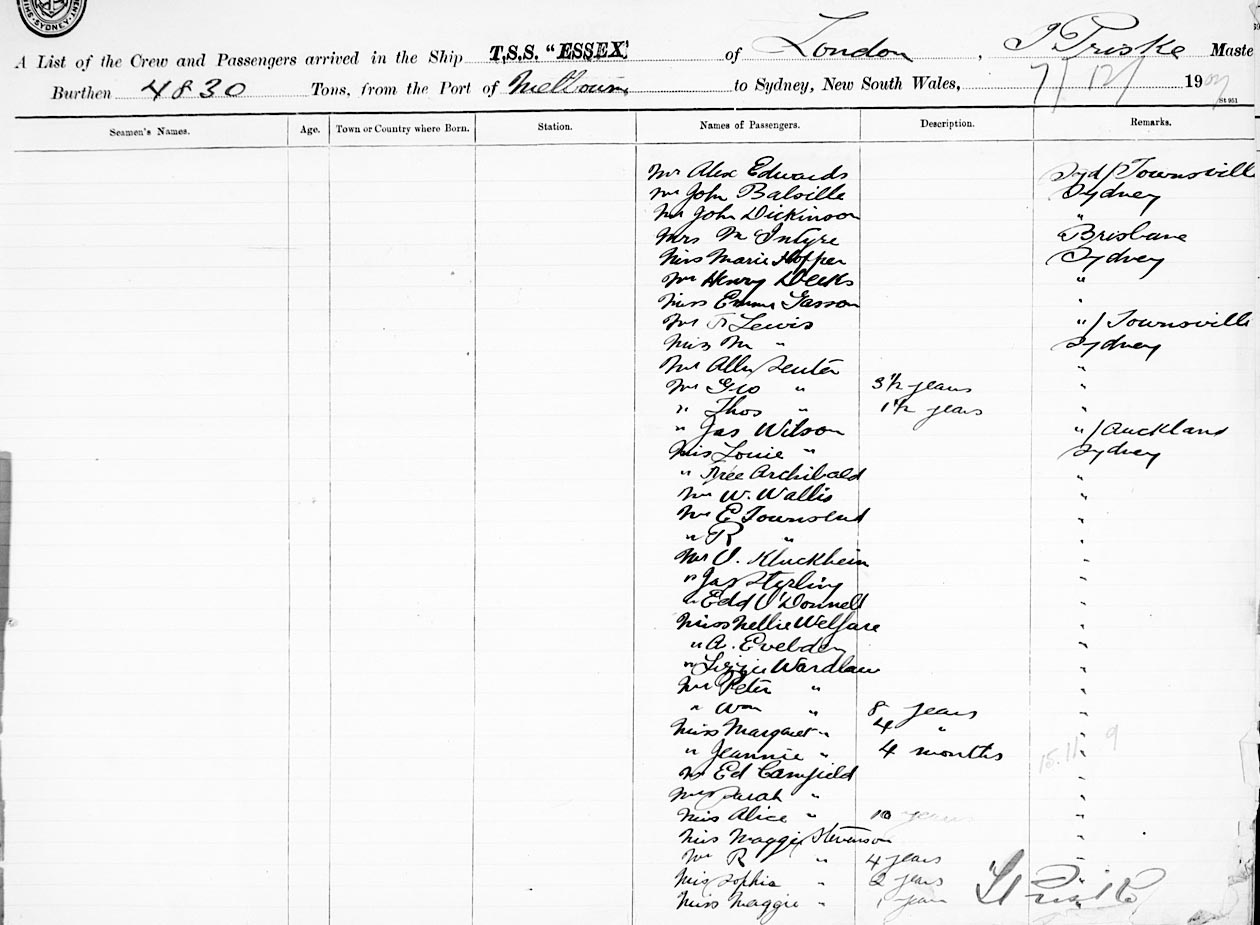 SYDNEY
A List of the Crew and Passengers arrived in the Ship T.S.S. "ESSEX" of London, Master
Burthen 4830 Tons, from the Port of Melbourne to Sydney, New South Wales, 7/12/ 190
St 951
Seamen's Names. Age. Town or Country where Born. Station. Names of Passengers. Description. Remarks.
Mr Alex Edwards Syd/Townsville
Mr John Balville Sydney
Mr John Dickinson "
Mrs McIntyre Brisbane
Miss Marie Hopper Sydney
Mr Henry Deeks "
Miss Emma Gasson "
Mr Lewis "/Townsville
Miss M " Sydney
Mr "
Mr Geo " 3½ years "
" Thos " 1½ years "
" Jas Wilson "/Auckland
Miss Louie " Sydney
" Archibald "
Mr W. Wallis "
Mr E Townsend "
" R " "
Mr "
" Jas Sterling "
" Edd O'Donnell "
Miss Nellie Welfare "
" A. Evelden "
" Lizzie Wardlaw "
Mr Peter " "
" Wm " 8 years "
Miss Margaret " 4 " "
" Jeannie " 4 months "
Mr Ed Camfield "
Mrs Sarah " "
Miss Alice " 10 years "
Miss Maggie Stevenson "
Mr R " 4 years "
Miss Sophia " 2 years "
Miss Maggie " 1 year